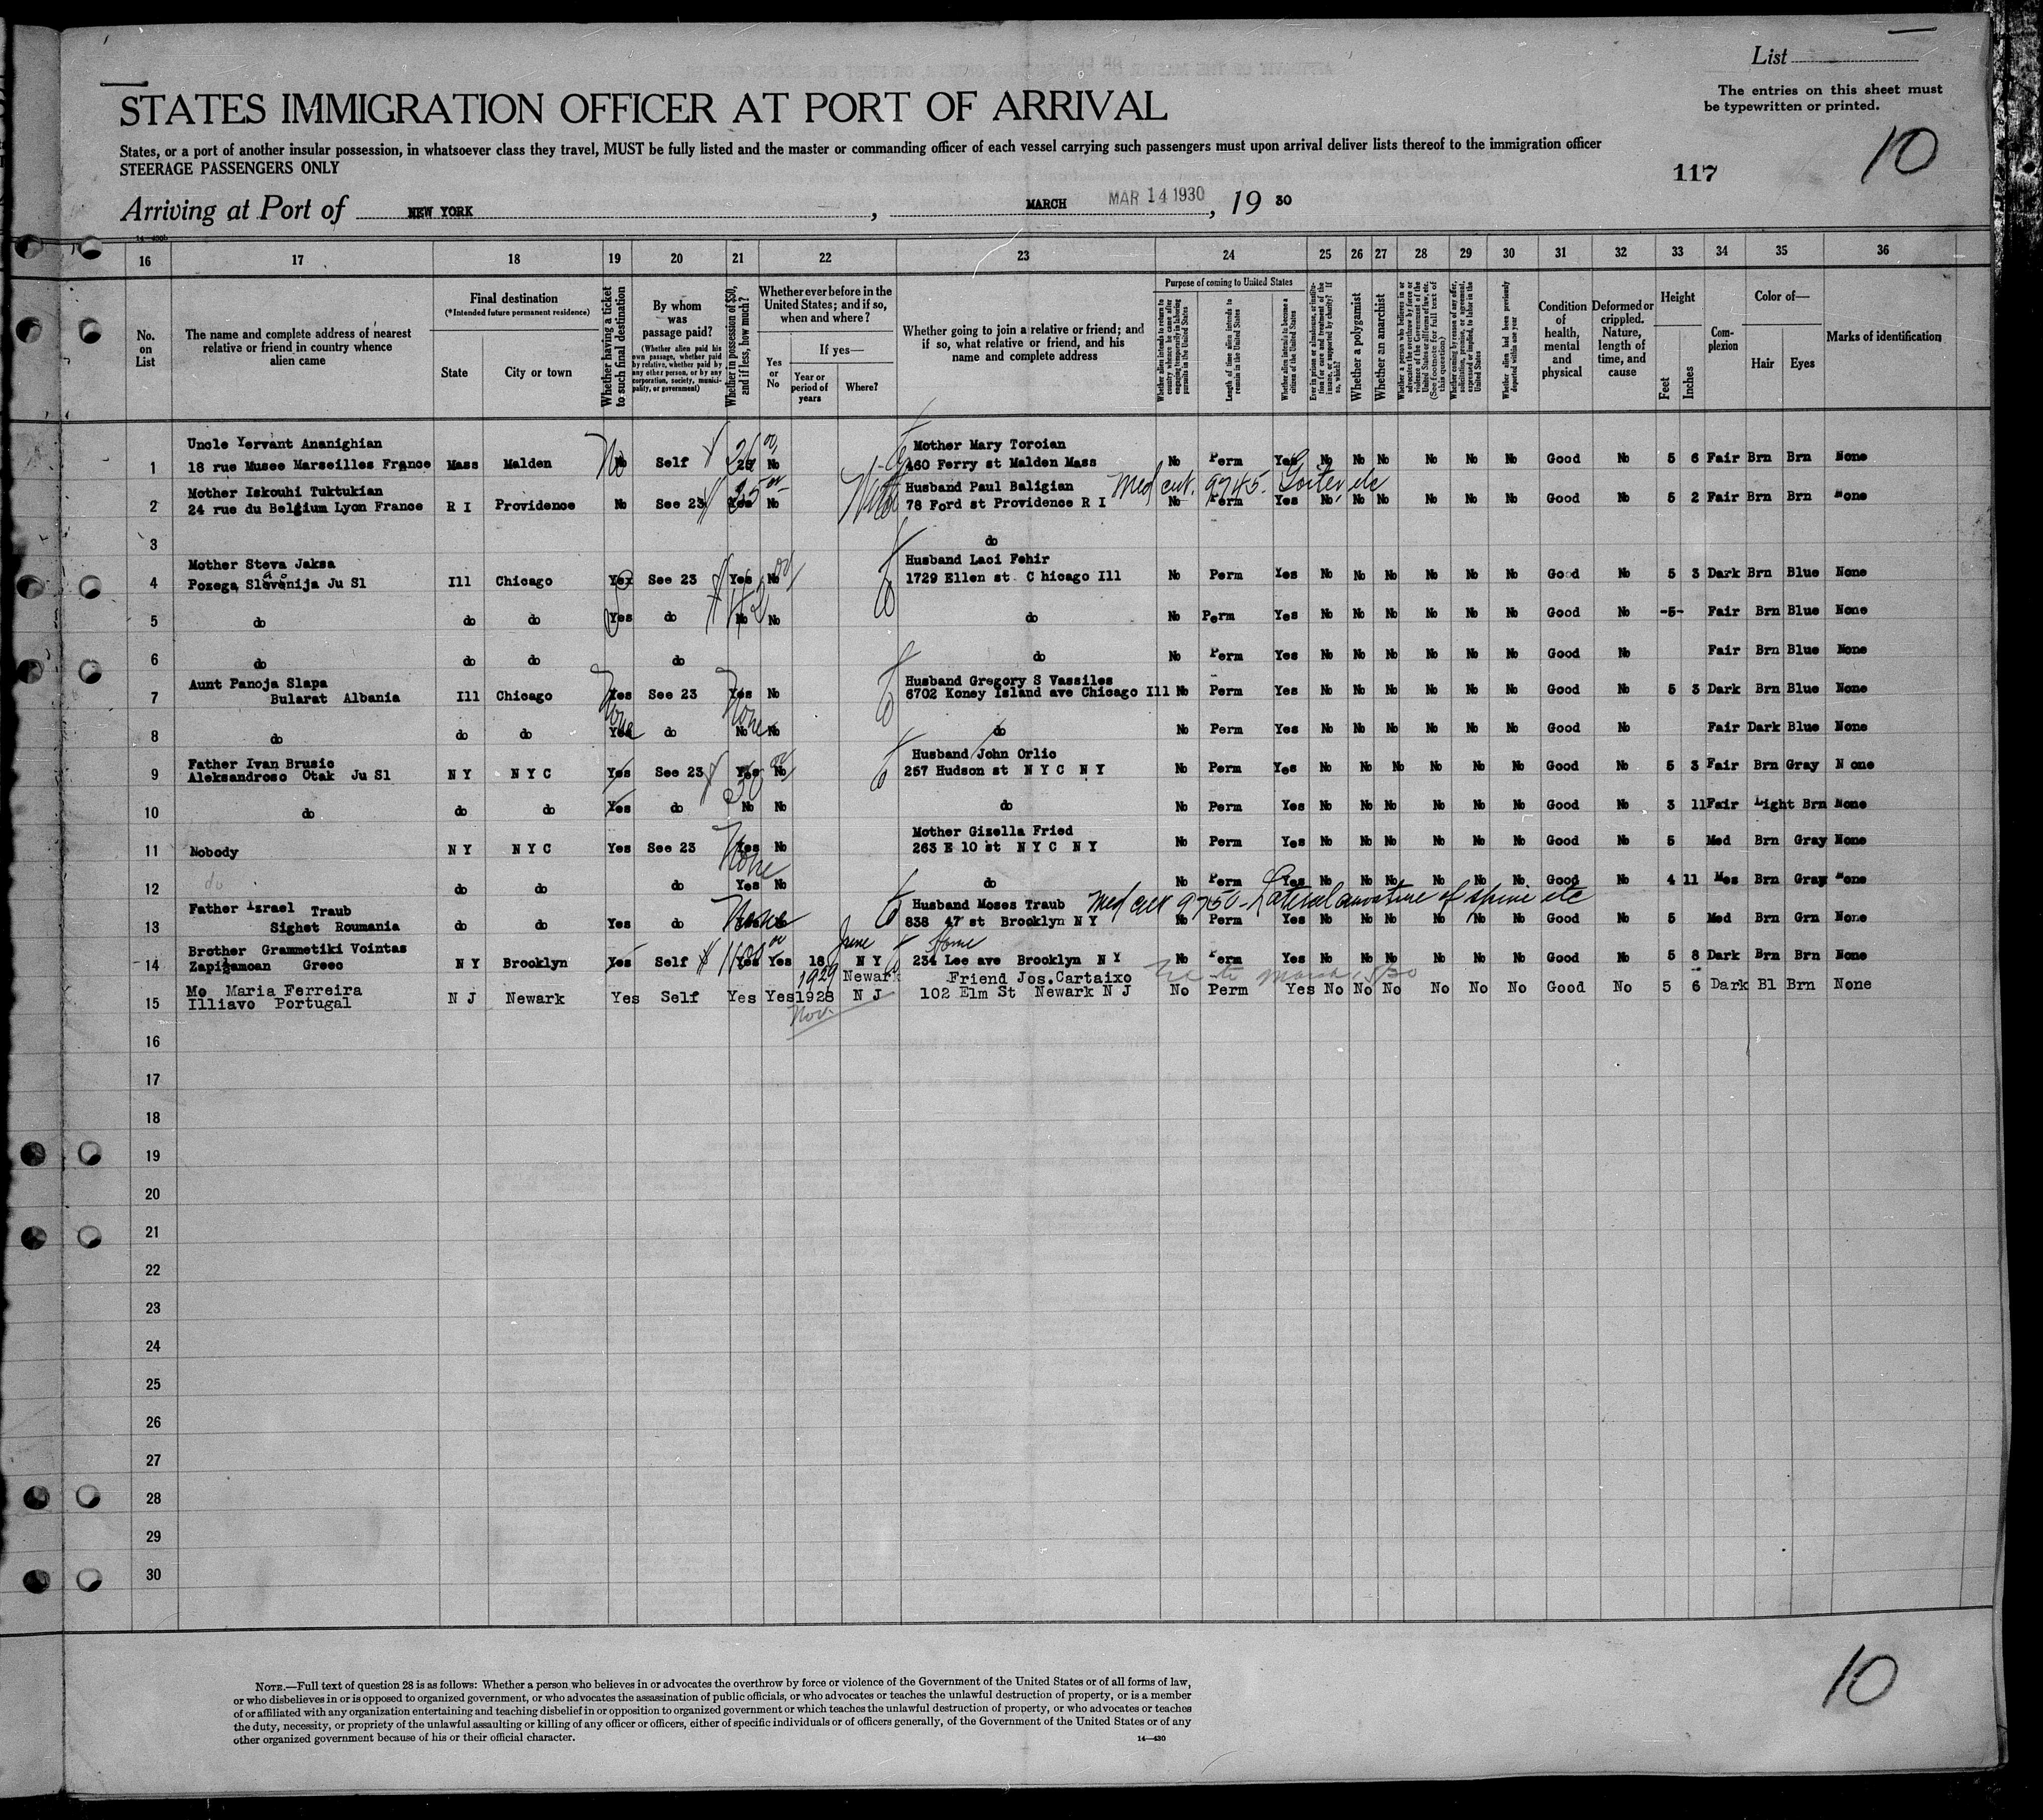 List
The entries on this sheet must
be typewritten or printed.
STATES IMMIGRATION OFFICER AT PORT OF ARRIVAL
10
States, or a port of another insular possession, in whatsoever class they travel, MUST be fully listed and the master or commanding officer of each vessel carrying such passengers must upon arrival deliver lists thereof to the immigration officer
STEERAGE PASSENGERS ONLY
117
Arriving at Port of NEW YORK, MARCH MAR 14 1930, 19 30
16 17 18 19 20 21 22 23 24 25 26 27 28 29 30 31 32 33 34 35 36
No. on List
The name and complete address of nearest relative or friend in country whence alien came
Final destination (*Intended future permanent residence)
State
City or town
Whether having a ticket to such final destination
By whom was passage paid?
(Whether alien paid his own passage, whether paid by relative, whether paid by any other person, or by any corporation, society, municipality, or government)
Whether in possession of $50, and if less, how much?
Whether ever before in the United States; and if so, when and where?
Yes or No
If yes—
Year or period of years
Where?
Whether going to join a relative or friend; and if so, what relative or friend, and his name and complete address
Purpose of coming to United States
Whether alien intends to return to country whence he came after engaging temporarily in laboring pursuits in the United States
Length of time alien intends to remain in the United States
Whether alien intends to become a citizen of the United States
Ever in prison or almshouse, or institution for care and treatment of the insane, or supported by charity? If so, which?
Whether a polygamist
Whether an anarchist
Whether a person who believes in or advocates the overthrow by force or violence of the Government of the United States or all forms of law, etc. (See footnote for full text of this question)
Whether coming by reason of any offer, solicitation, promise, or agreement, expressed or implied, to labor in the United States
Whether alien had been previously deported within one year
Condition of health, mental and physical
Deformed or crippled. Nature, length of time, and cause
Height
Feet
Inches
Complexion
Color of—
Hair
Eyes
Marks of identification
Uncle Yervant Ananighian Mother Mary Toroian
1 18 rue Musee Marseilles France Mass Malden No Self 25 No 460 Ferry st Malden Mass No Perm Yes No No No No No No Good No 5 6 Fair Brn Brn None
Mother Iskouhi Tuktukian Husband Paul Baligian Med cert. 9745. Goiter, etc
2 24 rue du Belgium Lyon France R I Providence No See 23 Yes No 78 Ford st Providence R I No Perm Yes No No No No No No Good No 5 2 Fair Brn Brn None
3 do
Mother Steva Jaksa Husband Laci Fehir
4 Pozega Slavonija Ju Sl Ill Chicago Yes See 23 Yes No 1729 Ellen st Chicago Ill No Perm Yes No No No No No No Good No 5 3 Dark Brn Blue None
5 do do do Yes do No No do No Perm Yes No No No No No No Good No -5- Fair Brn Blue None
6 do do do do do No Perm Yes No No No No No No Good No Fair Brn Blue None
Aunt Panoja Slapa Husband Gregory S Vassiles
7 Bularat Albania Ill Chicago Yes See 23 Yes No 6702 Koney Island ave Chicago Ill No Perm Yes No No No No No No Good No 5 3 Dark Brn Blue None
None None
8 do do do Yes do No No do No Perm Yes No No No No No No Good No Fair Dark Blue None
Father Ivan Brusic Husband John Orlic
9 Aleksandroso Otak Ju Sl N Y N Y C Yes See 23 Yes No 257 Hudson st N Y C N Y No Perm Yes No No No No No No Good No 5 3 Fair Brn Gray None
10 do do do Yes do No No do No Perm Yes No No No No No No Good No 3 11 Fair Light Brn None
Mother Gizella Fried
11 Nobody N Y N Y C Yes See 23 Yes No 263 E 10 st N Y C N Y No Perm Yes No No No No No No Good No 5 Med Brn Gray None
None
12 do do do do Yes No do No Perm Yes No No No No No No Good No 4 11 Mes Brn Gray None
Father Israel Traub Husband Moses Traub Med cert 9750 - Lateral curvature of spine etc
13 Sighet Roumania do do Yes do None 838 47 st Brooklyn N Y No Perm Yes No No No No No No Good No 5 Med Brn Grn None
Brother Grammetiki Vointas June Home
14 Greec N Y Brooklyn Yes Self Yes Yes 18 1929 N Y 234 Lee ave Brooklyn N Y No Perm Yes No No No No No No Good No 5 8 Dark Brn Brn None
Mo Maria Ferreira Newark Friend Jos.Cartaixo
15 Illiavo Portugal N J Newark Yes Self Yes Yes 1928 N J 102 Elm St Newark N J No Perm Yes No No No No No No Good No 5 6 Dark Bl Brn None
Nov.
16
17
18
19
20
21
22
23
24
25
26
27
28
29
30
10
NOTE.—Full text of question 28 is as follows: Whether a person who believes in or advocates the overthrow by force or violence of the Government of the United States or of all forms of law,
or who disbelieves in or is opposed to organized government, or who advocates the assassination of public officials, or who advocates or teaches the unlawful destruction of property, or is a member
of or affiliated with any organization entertaining and teaching disbelief in or opposition to organized government or which teaches the unlawful destruction of property, or who advocates or teaches
the duty, necessity, or propriety of the unlawful assaulting or killing of any officer or officers, either of specific individuals or of officers generally, of the Government of the United States or of any
other organized government because of his or their official character.
14—430